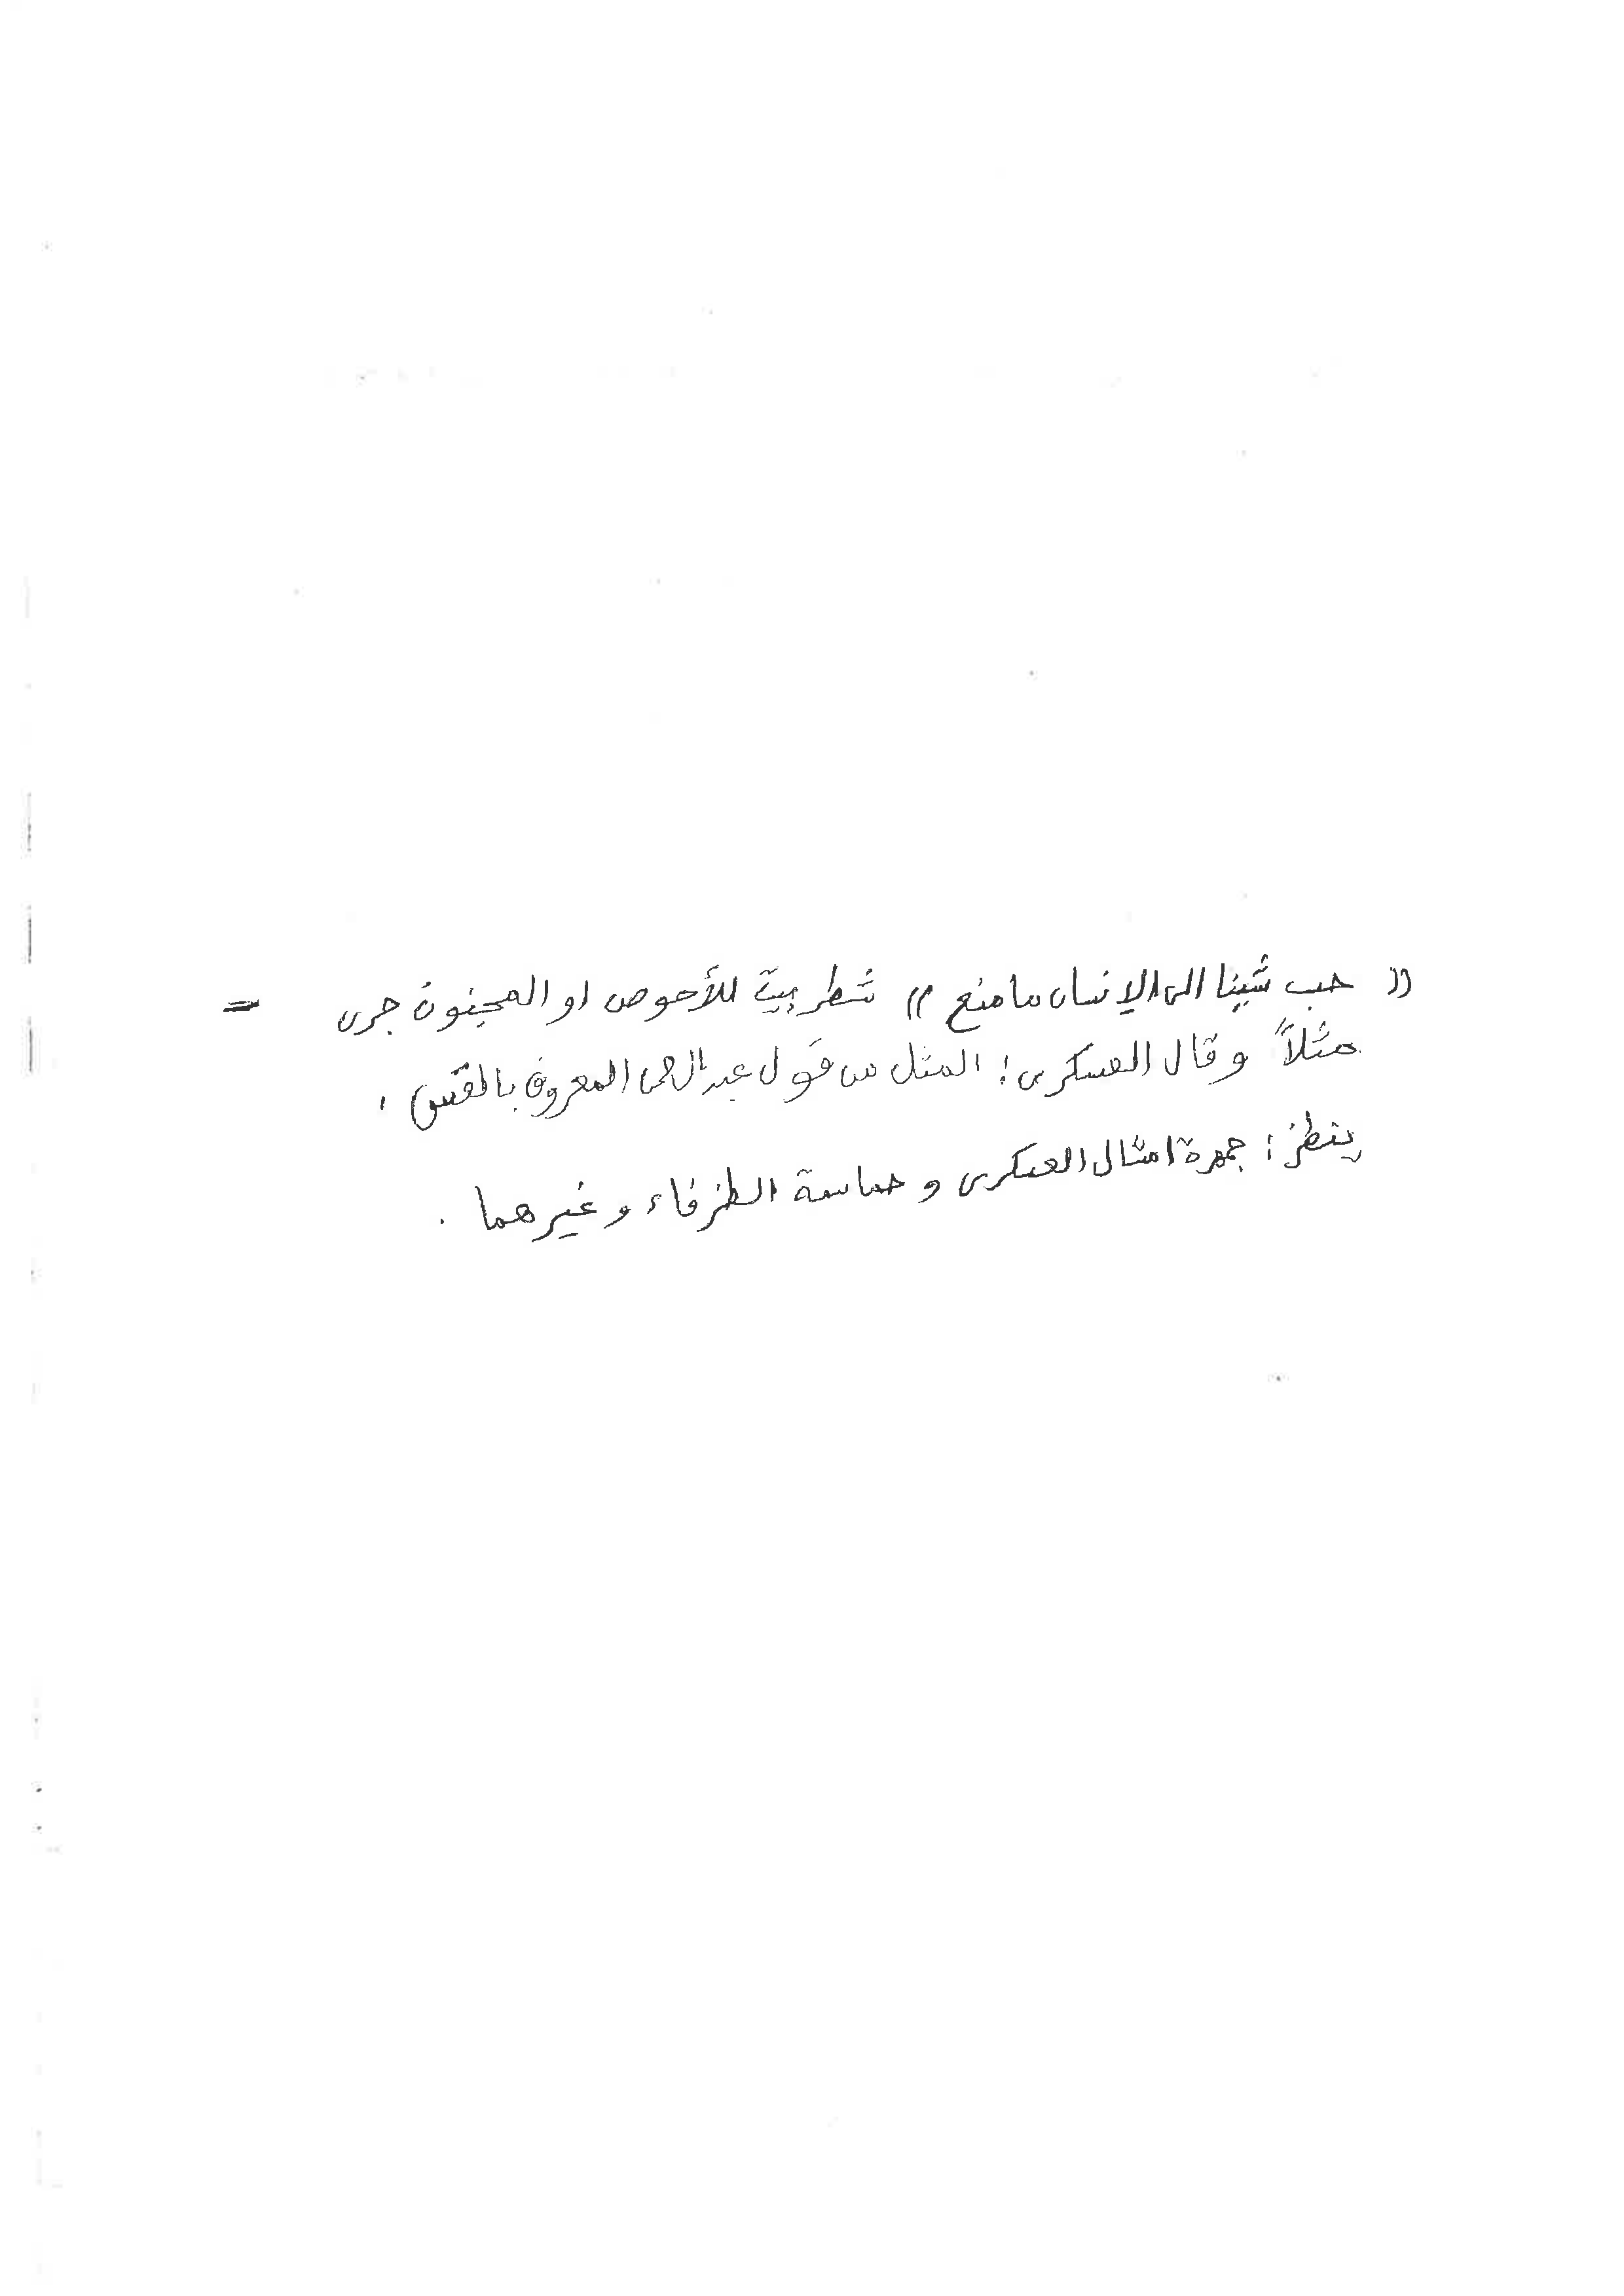 (( حب شيئا الى الإنسان ما منع )) شطر بيت للأحوص او المجنون جرى =
مثلاً وقال العسكرى : المثل من قول عبد الرحمن المعروف بالقس .
ينظر : جمهرة امثال العسكرى و حماسة الظرفاء و غيرهما .